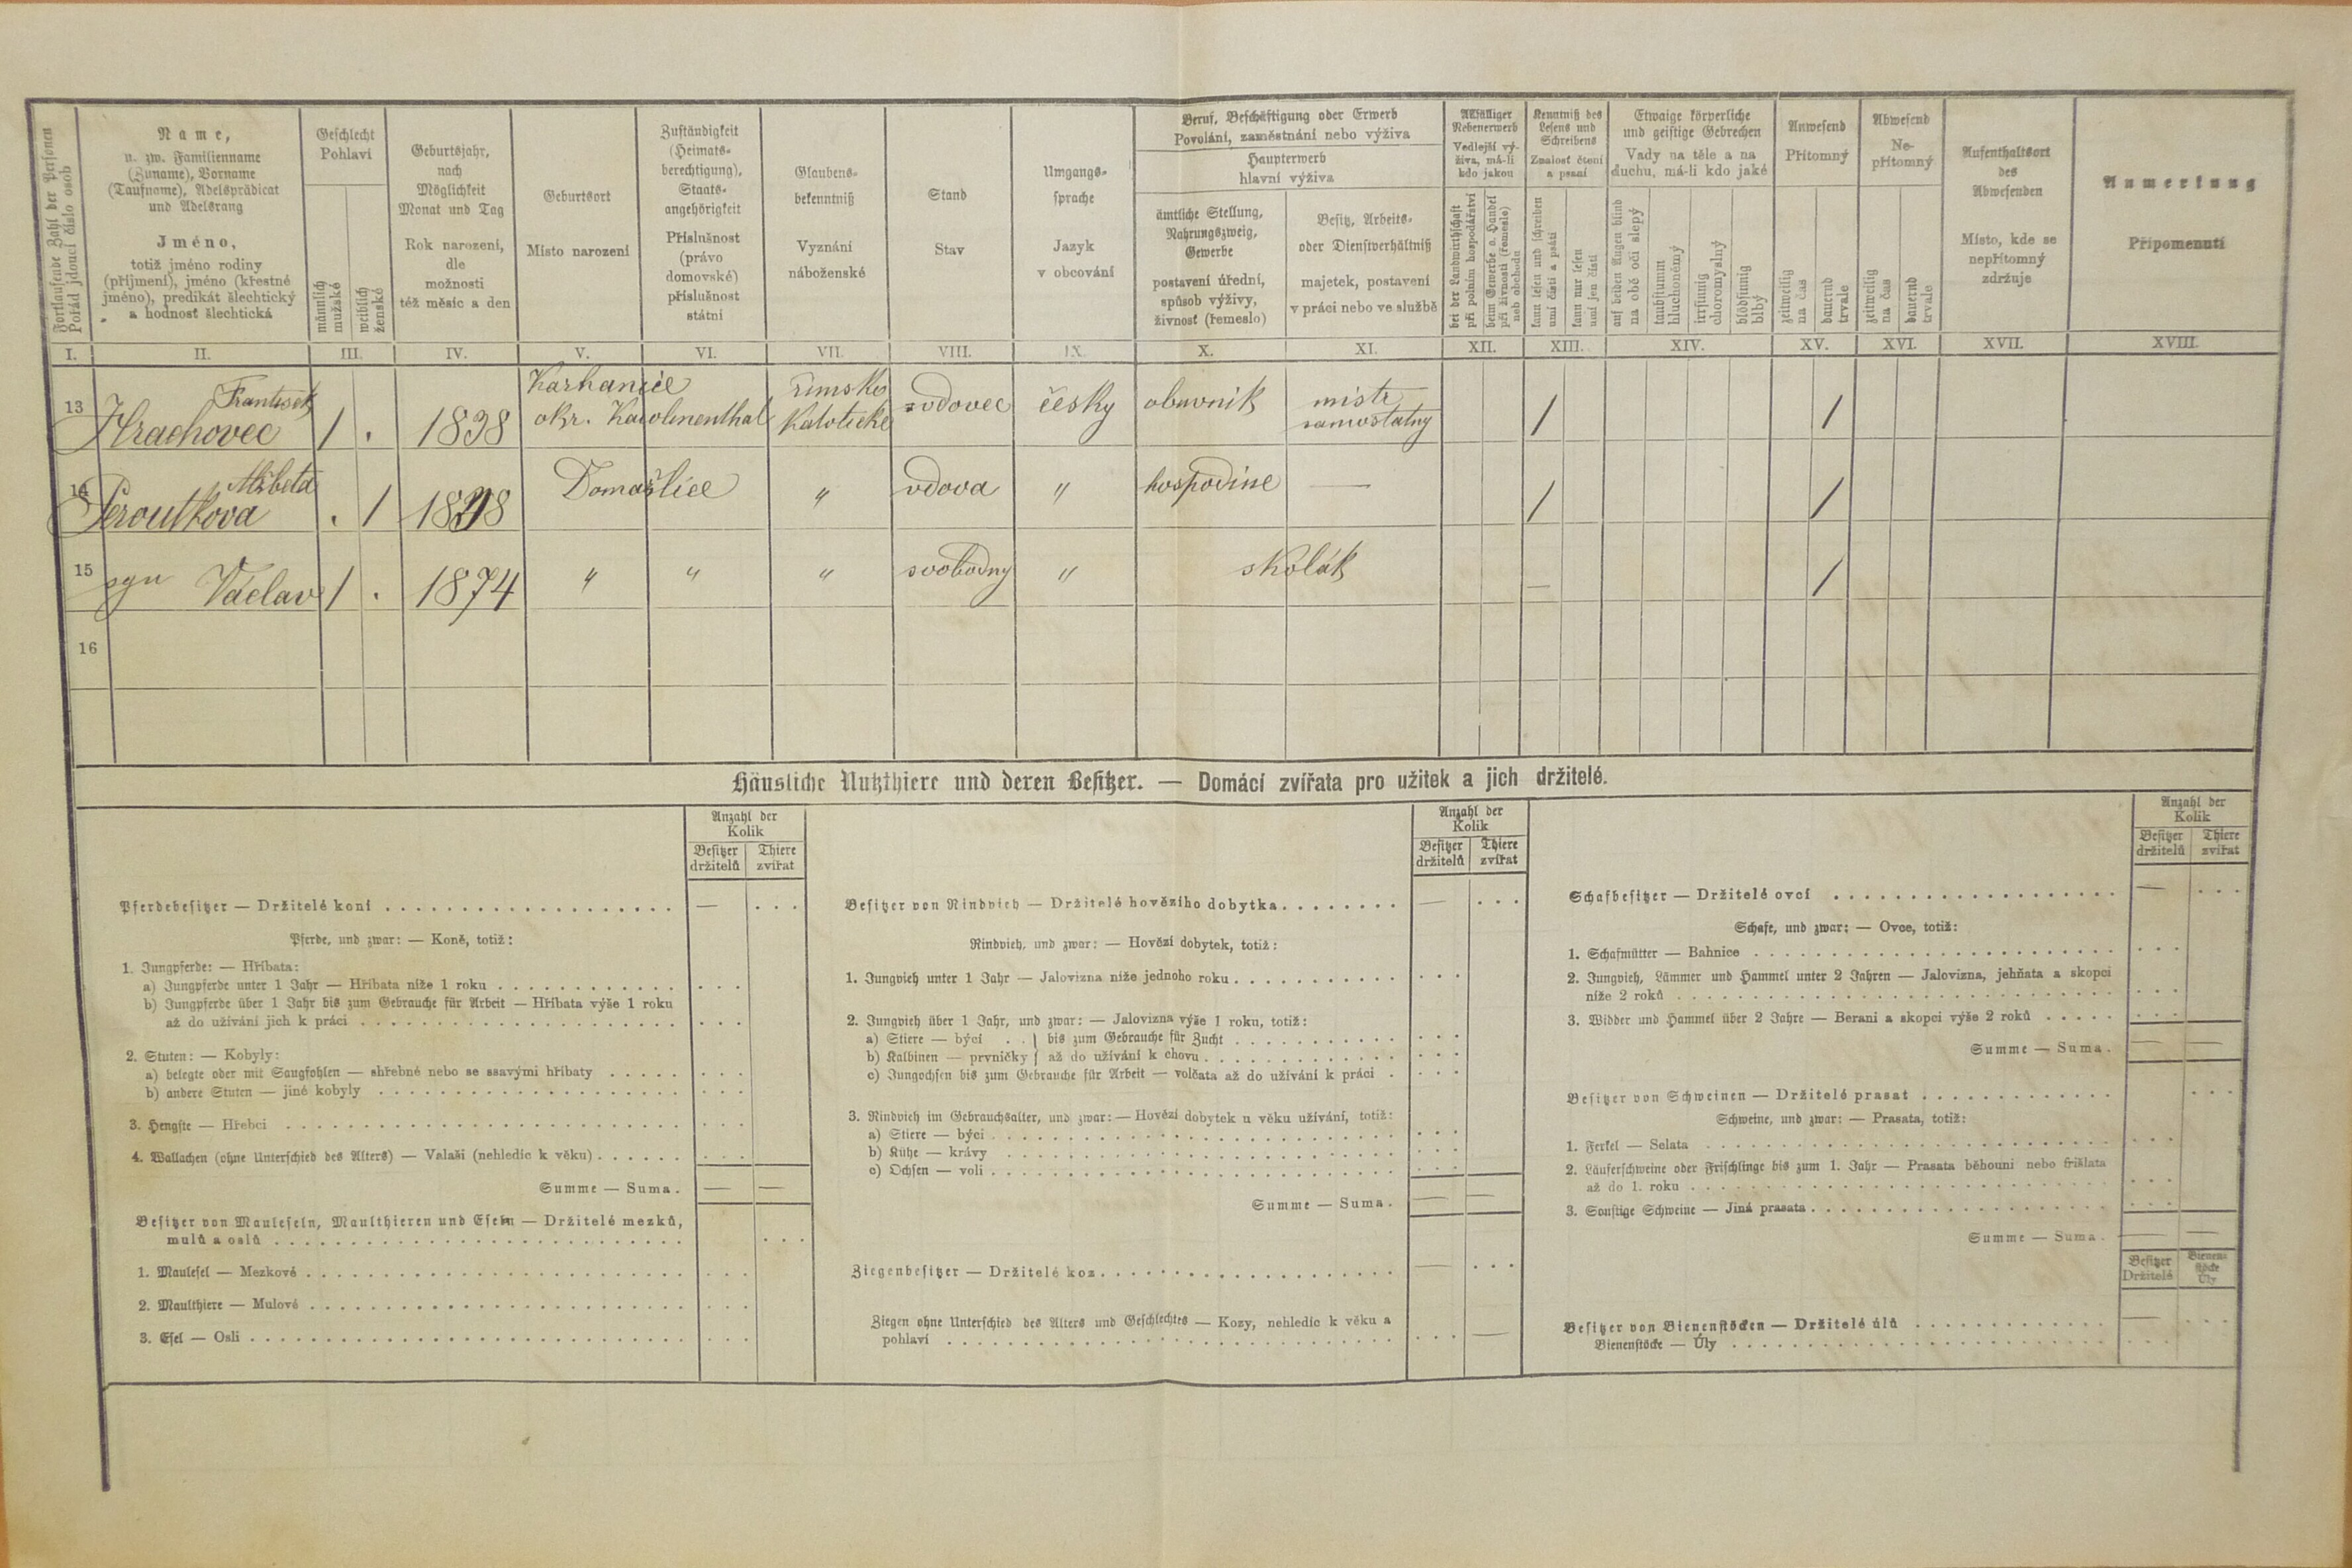 Fortlaufende Zahl der Personen
Pořád jdoucí číslo osob
Name,
u. zw. Familienname
(Zuname), Vorname
(Taufname), Adelsprädicat
und Adelsrang
Jméno,
totiž jméno rodiny
(příjmení), jméno (křestné
jméno), predikát šlechtický
a hodnost šlechtická
Geschlecht
Pohlaví
männlich
mužské
weiblich
ženské
Geburtsjahr,
nach
Möglichkeit
Monat und Tag
Rok narození,
dle
možnosti
též měsíc a den
Geburtsort
Místo narození
Zuständigkeit
(Heimats-
berechtigung),
Staats-
angehörigkeit
Příslušnost
(právo
domovské)
příslušnost
státní
Glaubens-
bekenntniß
Vyznání
náboženské
Stand
Stav
Umgangs-
sprache
Jazyk
v obcování
Beruf, Beschäftigung oder Erwerb
Povolání, zaměstnání nebo výživa
Haupterwerb
hlavní výživa
ämtliche Stellung,
Nahrungszweig,
Gewerbe
postavení úřední,
spůsob výživy,
živnosť (řemeslo)
Besitz, Arbeits-
oder Dienstverhältniß
majetek, postavení
v práci nebo ve službě
Allfälliger
Nebenerwerb
Vedlejší vý-
živa, má-li
kdo jakou
bei der Landwirthschaft
při polním hospodářství
beim Gewerbe o. Handel
při živnosti (řemesle)
neb obchodu
Kenntniß des
Lesens und
Schreibens
Znalosť čtení
a psaní
kann lesen und schreiben
umí čísti a psáti
kann nur lesen
umí jen čísti
Etwaige körperliche
und geistige Gebrechen
Vady na těle a na
duchu, má-li kdo jaké
auf beiden Augen blind
na obě oči slepý
taubstumm
hluchoněmý
irrsinnig
choromyslný
blödsinnig
blbý
Anwesend
Přítomný
zeitweilig
na čas
dauernd
trvale
Abwesend
Ne-
přítomný
zeitweilig
na čas
dauernd
trvale
Aufenthaltsort
des
Abwesenden
Místo, kde se
nepřítomný
zdržuje
Anmerkung
Připomenutí
I. II. III. IV. V. VI. VII. VIII. IX. X. XI. XII. XIII. XIV. XV. XVI. XVII. XVIII.
František Karhanice římsko
13 Hrachovec 1 . 1838 okr. Karolinenthal Katolické vdovec česky obuvník mistr samostatný / /
Alžběta
14 Peroutková . 1 18 8 Domažlice " vdova " hospodině — / /
15 syn Václav 1 . 1874 " " " svobodný " školák — /
16
Häusliche Nutzthiere und deren Besitzer. — Domácí zvířata pro užitek a jich držitelé.
Anzahl der
Kolik
Besitzer Thiere
držitelů zvířat
Pferdebesitzer — Držitelé koní — ...
Pferde, und zwar: — Koně, totiž:
1. Jungpferde: — Hříbata:
a) Jungpferde unter 1 Jahr — Hříbata níže 1 roku ...
b) Jungpferde über 1 Jahr bis zum Gebrauche für Arbeit — Hříbata výše 1 roku
až do užívání jich k práci ...
2. Stuten: — Kobyly:
a) belegte oder mit Saugfohlen — shřebné nebo se ssavými hříbaty ...
b) andere Stuten — jiné kobyly ...
3. Hengste — Hřebci ...
4. Wallachen (ohne Unterschied des Alters) — Valaši (nehledíc k věku) ...
Summe — Suma. — —
Besitzer von Mauleseln, Maulthieren und Eseln — Držitelé mezků,
mulů a oslů ...
1. Maulesel — Mezkové ...
2. Maulthiere — Mulové ...
3. Esel — Osli ...
Anzahl der
Kolik
Besitzer Thiere
držitelů zvířat
Besitzer von Rindvieh — Držitelé hovězího dobytka. — ...
Rindvieh, und zwar: — Hovězí dobytek, totiž:
1. Jungvieh unter 1 Jahr — Jalovizna níže jednoho roku ...
2. Jungvieh über 1 Jahr, und zwar: — Jalovizna výše 1 roku, totiž:
a) Stiere — býci . . } bis zum Gebrauche für Zucht ...
b) Kalbinen — prvničky } až do užívání k chovu ...
c) Jungochsen bis zum Gebrauche für Arbeit — volčata až do užívání k práci ...
3. Rindvieh im Gebrauchsalter, und zwar: — Hovězí dobytek u věku užívání, totiž:
a) Stiere — býci ...
b) Kühe — krávy ...
c) Ochsen — voli ...
Summe — Suma. — —
Ziegenbesitzer — Držitelé koz. — ...
Ziegen ohne Unterschied des Alters und Geschlechtes — Kozy, nehledíc k věku a
pohlaví ... —
Anzahl der
Kolik
Besitzer Thiere
držitelů zvířat
Schafbesitzer — Držitelé ovcí — ...
Schafe, und zwar: — Ovce, totiž:
1. Schafmütter — Bahnice ...
2. Jungvieh, Lämmer und Hammel unter 2 Jahren — Jalovizna, jehňata a skopci
níže 2 roků ...
3. Widder und Hammel über 2 Jahre — Berani a skopci výše 2 roků ...
Summe — Suma. — —
Besitzer von Schweinen — Držitelé prasat ...
Schweine, und zwar: — Prasata, totiž:
1. Ferkel — Selata ...
2. Läuferschweine oder Frischlinge bis zum 1. Jahr — Prasata běhouni nebo frišlata
až do 1. roku ...
3. Sonstige Schweine — Jiná prasata ...
Summe — Suma. — —
Besitzer Bienen-
Držitelé stöcke
Úly
Besitzer von Bienenstöcken — Držitelé úlů — ...
Bienenstöcke — Úly ...